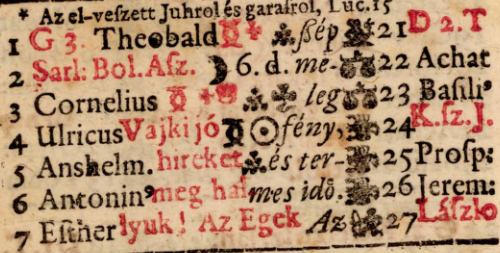 * Az el-veſzett Juhrol és garaſrol, Luc. 15
1 G 3. Theobald ſzép 21 D 2. T
2 Sarl: Bol. Aſz. 6. d. me- 22 Achat
3 Cornelius leg 23 Baſili⁹
4 Ulricus Vajki jó fény, 24 K. ſz. J.
5 Anshelm. hireket és ter- 25 Proſp:
6 Antonin⁹ meg hal mes idő. 26 Jerem:
7 Eſther lyuk! Az Egek Az 27 László